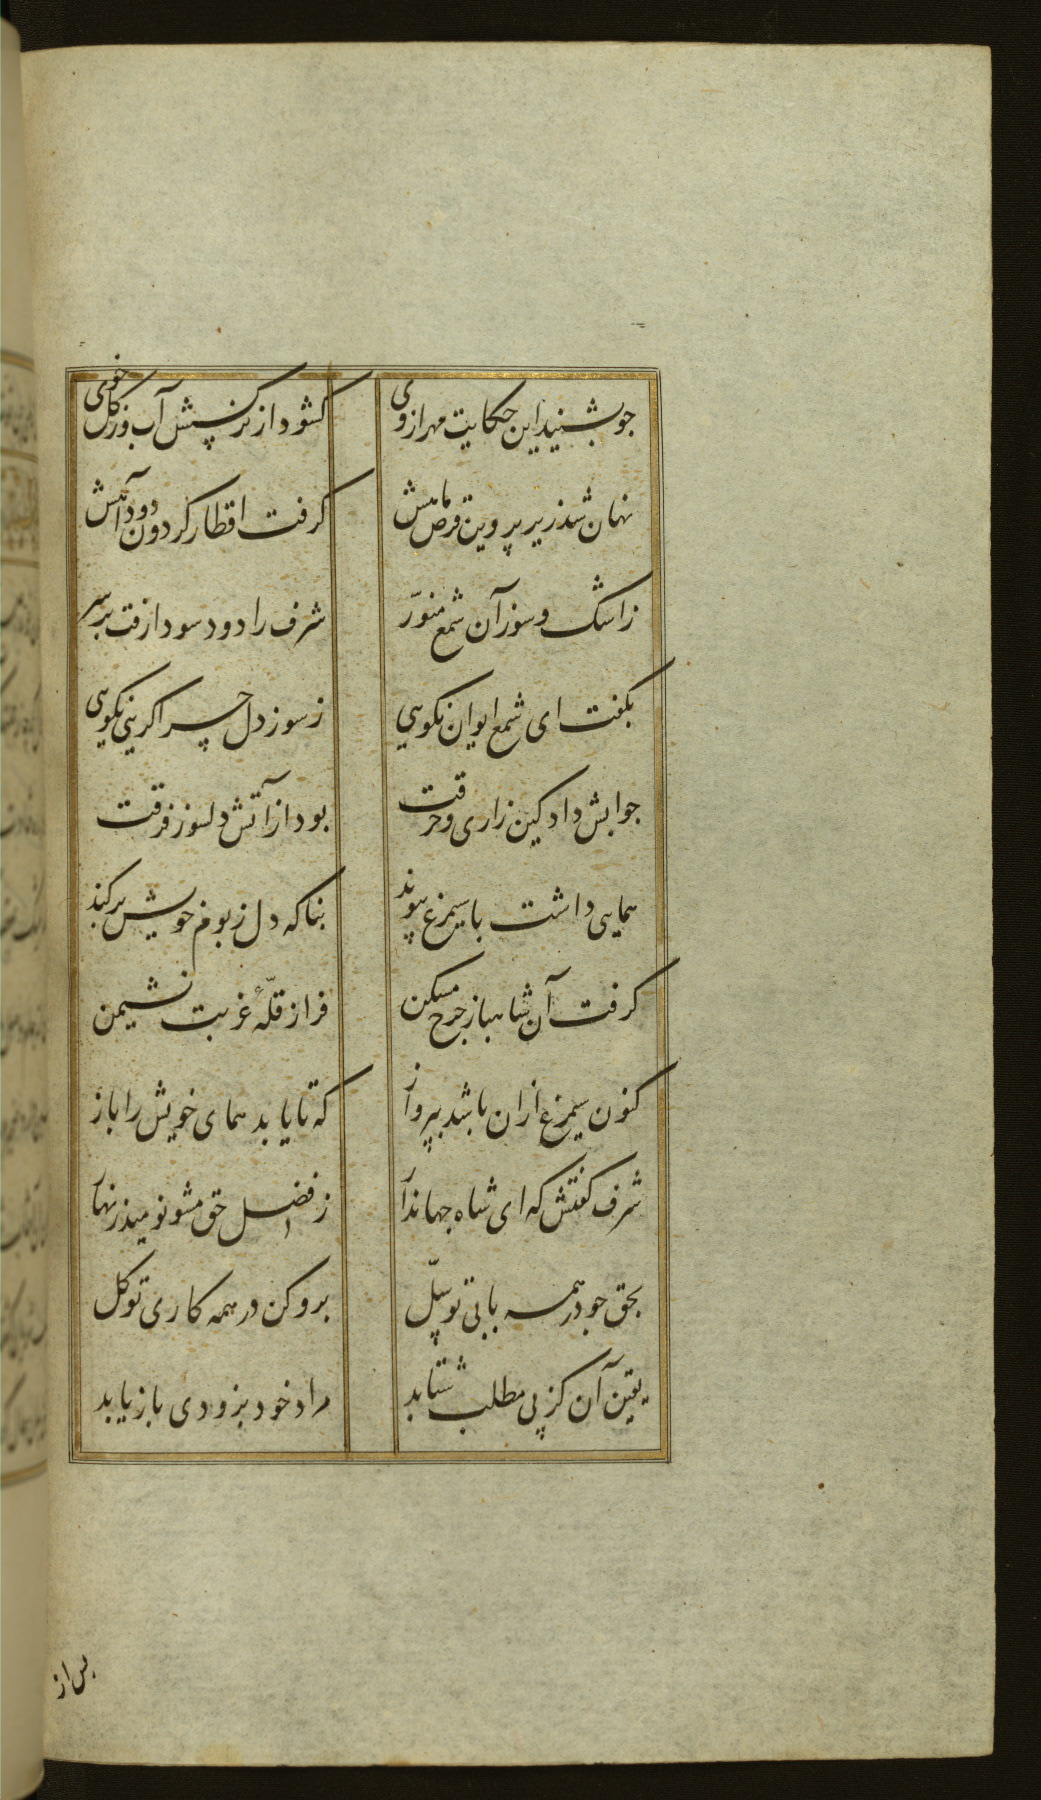 چو بشنید این حکایت مهر از وی
کشود از نرکسش آب و ز کل خوی
نهان شد زیر پروین قرص ماهش
کرفت اقطار کردون دود آهش
ز اشک و سوز آن شمع منور
شرف را دود سودا رفت بر سر
بکفت ای شمع ایوان نکویی
ز سوز دل چرا کریی نکویی
جوابش داد کین زاری و حرقت
بود از آتش دلسوز فرقت
همایی داشت با سیمرغ پیوند
بناکه دل ز بوم خویش برکند
کرفت آن شاهباز چرخ مسکن
فراز قلّهٔ غربت نشیمن
کنون سیمرغ ازان باشد بپرواز
که تا یابد همای خویش را باز
شرف کفتش که ای شاه جهاندار
ز فضل حق مشو نومید زنهار
بحق جو در همه بابی توسّل
برو کن در همه کاری توکل
یقین آن کز پی مطلب شتابد
مراد خود بزودی باز یابد
پس از